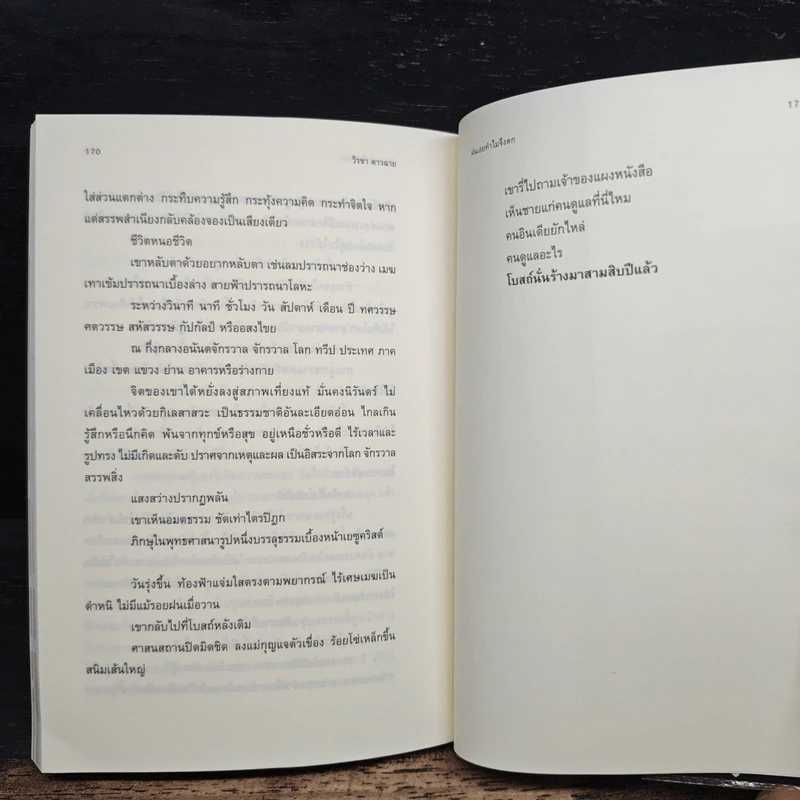 170
วิรชา ดาวฉาย
ใส่ส่วนแตกต่าง กระทืบความรู้สึก กระทุ้งความคิด กระทำจิตใจ หาก
แต่สรรพสำเนียงกลับคล้องจองเป็นเสียงเดียว
ชีวิตหนอชีวิต
เขาหลับตาด้วยอยากหลับตา เช่นลมปรารถนาช่องว่าง เมฆ
เทาเข้มปรารถนาเบื้องล่าง สายฟ้าปรารถนาโลหะ
ระหว่างวินาที นาที ชั่วโมง วัน สัปดาห์ เดือน ปี ทศวรรษ
ศตวรรษ สหัสวรรษ กัปกัลป์ หรืออสงไขย
ณ กึ่งกลางอนันตจักรวาล จักรวาล โลก ทวีป ประเทศ ภาค
เมือง เขต แขวง ย่าน อาคารหรือร่างกาย
จิตของเขาได้หยั่งลงสู่สภาพเที่ยงแท้ มั่นคงนิรันดร์ ไม่
เคลื่อนไหวด้วยกิเลสาสวะ เป็นธรรมชาติอันละเอียดอ่อน ไกลเกิน
รู้สึกหรือนึกคิด พ้นจากทุกข์หรือสุข อยู่เหนือชั่วหรือดี ไร้เวลาและ
รูปทรง ไม่มีเกิดและดับ ปราศจากเหตุและผล เป็นอิสระจากโลก จักรวาล
สรรพสิ่ง
แสงสว่างปรากฏพลัน
เขาเห็นอมตธรรม ชัดเท่าไตรปิฎก
ภิกษุในพุทธศาสนารูปหนึ่งบรรลุธรรมเบื้องหน้าเยซูคริสต์
วันรุ่งขึ้น ท้องฟ้าแจ่มใสตรงตามพยากรณ์ ไร้เศษเมฆเป็น
ตำหนิ ไม่มีแม้รอยฝนเมื่อวาน
เขากลับไปที่โบสถ์หลังเดิม
ศาสนสถานปิดมิดชิด ลงแม่กุญแจตัวเขื่อง ร้อยโซ่เหล็กขึ้น
สนิมเส้นใหญ่
17
ฝนเอยทำไมจึงตก
เขารี่ไปถามเจ้าของแผงหนังสือ
เห็นชายแก่คนดูแลที่นี่ไหม
คนอินเดียยักไหล่
คนดูแลอะไร
โบสถ์นั่นร้างมาสามสิบปีแล้ว